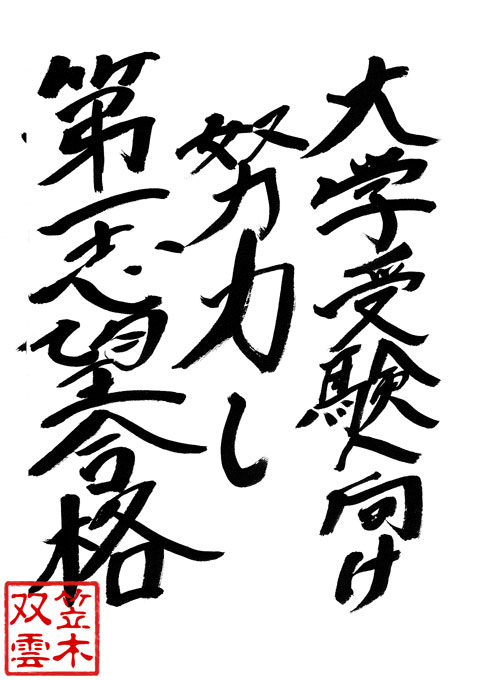 大学受験へ向け
努力し
第一志望合格
笠木
双雲